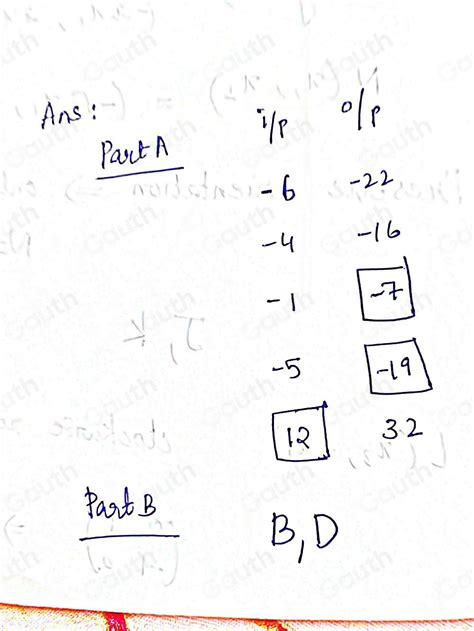 Ans:
Part A
i/p o/p
-6 -22
-4 -16
-1 -7
-5 -19
12 32
Part B
B, D